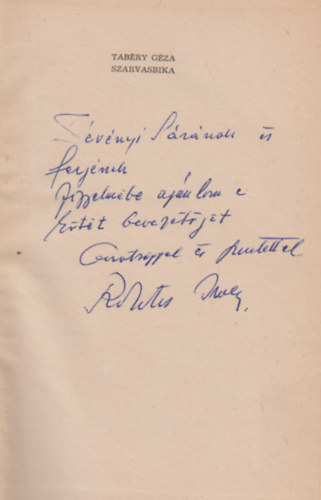 TABÉRY GÉZA
SZARVASBIKA
Tévényi Sárának és
férjének
figyelmébe ajánlom e
kötet bevezetőjét
barátsággal és szeretettel
Robotos Imre.